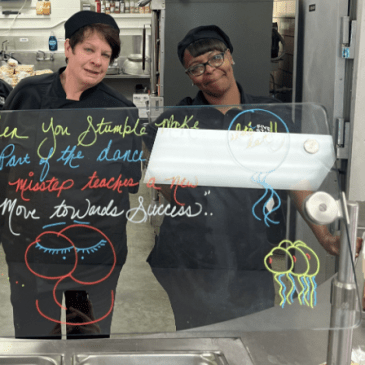 en You Stumble Make
Part of the dance
misstep teaches a new
Move towards Success"..